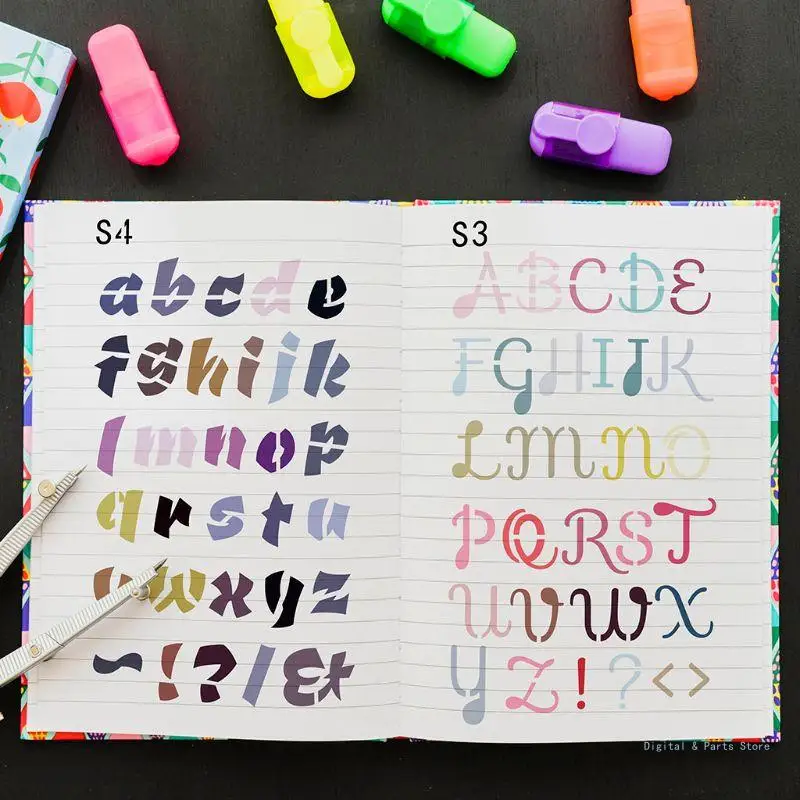 S4
a b c d e
f g h i j k
l m n o p
q r s t u
v w x y z
~ ! ? / & *
S3
A B C D E
F G H I J K
L M N O
P Q R S T
U V U W X
Y Z ! ? < >
Digital & Parts Store